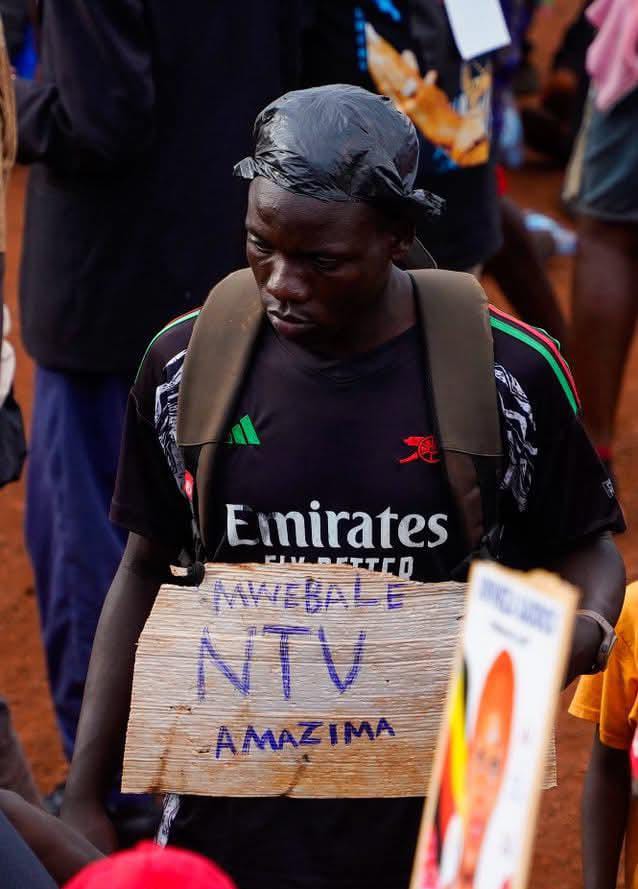 Emirates
FLY BETTER
MWEBALE
NTV
AMAZIMA